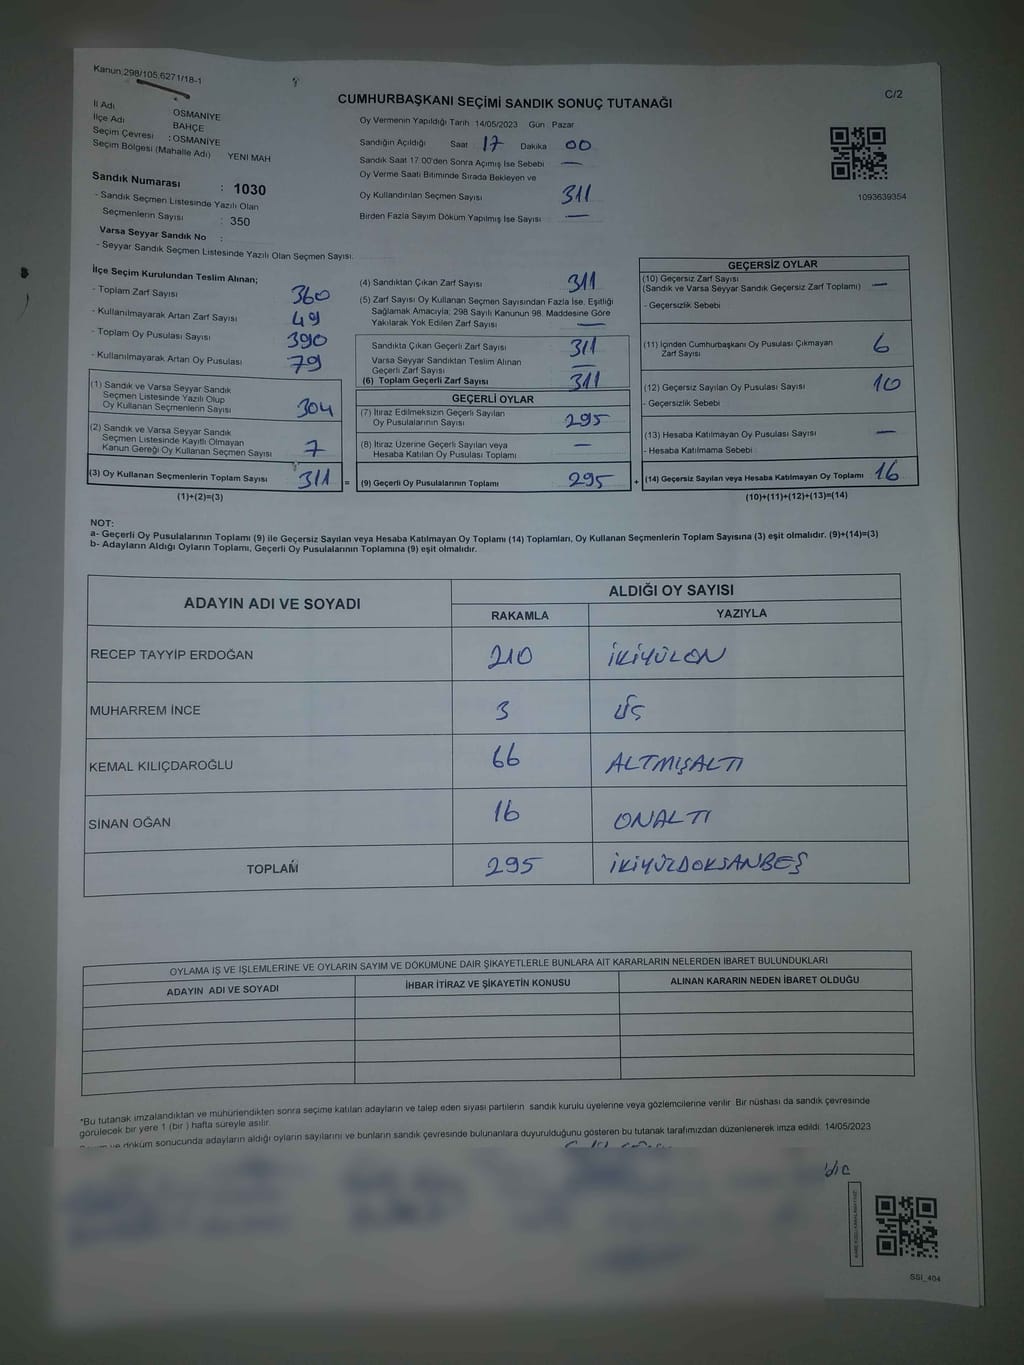 Kanun:298/105,6271/18-1
C/2
CUMHURBAŞKANI SEÇİMİ SANDIK SONUÇ TUTANAĞI
İl Adı OSMANİYE
İlçe Adı BAHÇE
Seçim Çevresi : OSMANİYE
Seçim Bölgesi (Mahalle Adı) YENİ MAH
Oy Vermenin Yapıldığı Tarih 14/05/2023 Gün Pazar
Sandığın Açıldığı Saat 17 Dakika 00
Sandık Saat 17.00'den Sonra Açımış İse Sebebi —
Oy Verme Saati Bitiminde Sırada Bekleyen ve
Oy Kullandırılan Seçmen Sayısı 311
Birden Fazla Sayım Döküm Yapılmış İse Sayısı —
1093639354
Sandık Numarası : 1030
- Sandık Seçmen Listesinde Yazılı Olan
Seçmenlerin Sayısı : 350
Varsa Seyyar Sandık No :
- Seyyar Sandık Seçmen Listesinde Yazılı Olan Seçmen Sayısı:
İlçe Seçim Kurulundan Teslim Alınan;
- Toplam Zarf Sayısı 360
- Kullanılmayarak Artan Zarf Sayısı 49
- Toplam Oy Pusulası Sayısı 390
- Kullanılmayarak Artan Oy Pusulası 79
(1) Sandık ve Varsa Seyyar Sandık
Seçmen Listesinde Yazılı Olup
Oy Kullanan Seçmenlerin Sayısı 304
(2) Sandık ve Varsa Seyyar Sandık
Seçmen Listesinde Kayıtlı Olmayan
Kanun Gereği Oy Kullanan Seçmen Sayısı 7
(3) Oy Kullanan Seçmenlerin Toplam Sayısı 311 =
(1)+(2)=(3)
(4) Sandıktan Çıkan Zarf Sayısı 311
(5) Zarf Sayısı Oy Kullanan Seçmen Sayısından Fazla İse, Eşitliği
Sağlamak Amacıyla; 298 Sayılı Kanunun 98. Maddesine Göre
Yakılarak Yok Edilen Zarf Sayısı —
Sandıkta Çıkan Geçerli Zarf Sayısı 311
Varsa Seyyar Sandıktan Teslim Alınan
Geçerli Zarf Sayısı —
(6) Toplam Geçerli Zarf Sayısı 311
GEÇERLİ OYLAR
(7) İtiraz Edilmeksizin Geçerli Sayılan
Oy Pusulalarının Sayısı 295
(8) İtiraz Üzerine Geçerli Sayılan veya
Hesaba Katılan Oy Pusulası Toplamı —
(9) Geçerli Oy Pusulalarının Toplamı 295 +
GEÇERSİZ OYLAR
(10) Geçersiz Zarf Sayısı
(Sandık ve Varsa Seyyar Sandık Geçersiz Zarf Toplamı) —
- Geçersizlik Sebebi
(11) İçinden Cumhurbaşkanı Oy Pusulası Çıkmayan
Zarf Sayısı 6
(12) Geçersiz Sayılan Oy Pusulası Sayısı 10
- Geçersizlik Sebebi
(13) Hesaba Katılmayan Oy Pusulası Sayısı —
- Hesaba Katılmama Sebebi
(14) Geçersiz Sayılan veya Hesaba Katılmayan Oy Toplamı 16
(10)+(11)+(12)+(13)=(14)
NOT:
a- Geçerli Oy Pusulalarının Toplamı (9) ile Geçersiz Sayılan veya Hesaba Katılmayan Oy Toplamı (14) Toplamları, Oy Kullanan Seçmenlerin Toplam Sayısına (3) eşit olmalıdır. (9)+(14)=(3)
b- Adayların Aldığı Oyların Toplamı, Geçerli Oy Pusulalarının Toplamına (9) eşit olmalıdır.
ADAYIN ADI VE SOYADI
ALDIĞI OY SAYISI
RAKAMLA YAZIYLA
RECEP TAYYİP ERDOĞAN 210 İKİYÜZON
MUHARREM İNCE 3 ÜÇ
KEMAL KILIÇDAROĞLU 66 ALTMIŞALTI
SİNAN OĞAN 16 ONALTI
TOPLAM 295 İKİYÜZDOKSANBEŞ
OYLAMA İŞ VE İŞLEMLERİNE VE OYLARIN SAYIM VE DÖKÜMÜNE DAİR ŞİKAYETLERLE BUNLARA AİT KARARLARIN NELERDEN İBARET BULUNDUKLARI
ADAYIN ADI VE SOYADI İHBAR İTİRAZ VE ŞİKAYETİN KONUSU ALINAN KARARIN NEDEN İBARET OLDUĞU
*Bu tutanak imzalandıktan ve mühürlendikten sonra seçime katılan adayların ve talep eden siyasi partilerin sandık kurulu üyelerine veya gözlemcilerine verilir. Bir nüshası da sandık çevresinde
görülecek bir yere 1 (bir ) hafta süreyle asılır.
ve döküm sonucunda adayların aldığı oyların sayılarını ve bunların sandık çevresinde bulunanlara duyurulduğunu gösteren bu tutanak tarafımızdan düzenlenerek imza edildi. 14/05/2023
SSI_404